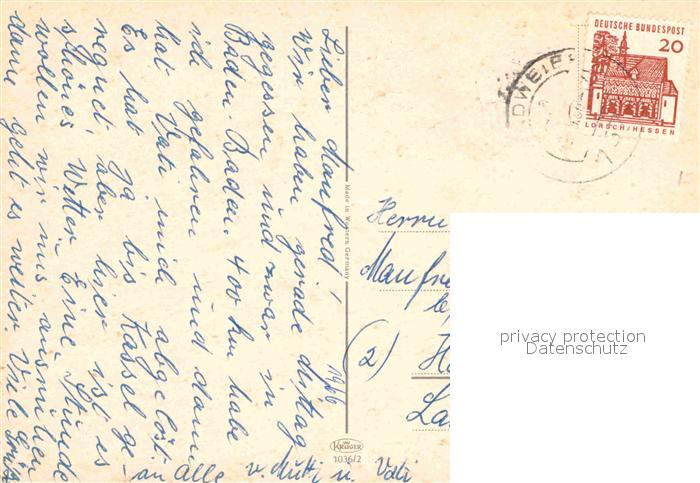 Lieber Manfred!
Wir haben gerade Mittag
gegessen und zwar in
Baden-Baden. 400 km habe
ich gefahren und dann
hat Vati mich abgelöst.
Es hat ja bis Kassel ge-
regnet, aber hier ist es
schönes Wetter. Eine Stunde
wollen wir uns ausruhen
dann geht es weiter. Viele Grüße
an alle v. Mutti u. Vati
1966
Made in Western Germany
KRÜGER
1036/2
DEUTSCHE BUNDESPOST
20
LORSCH/HESSEN
Herrn
Manfre
(2) H
La
privacy protection
Datenschutz